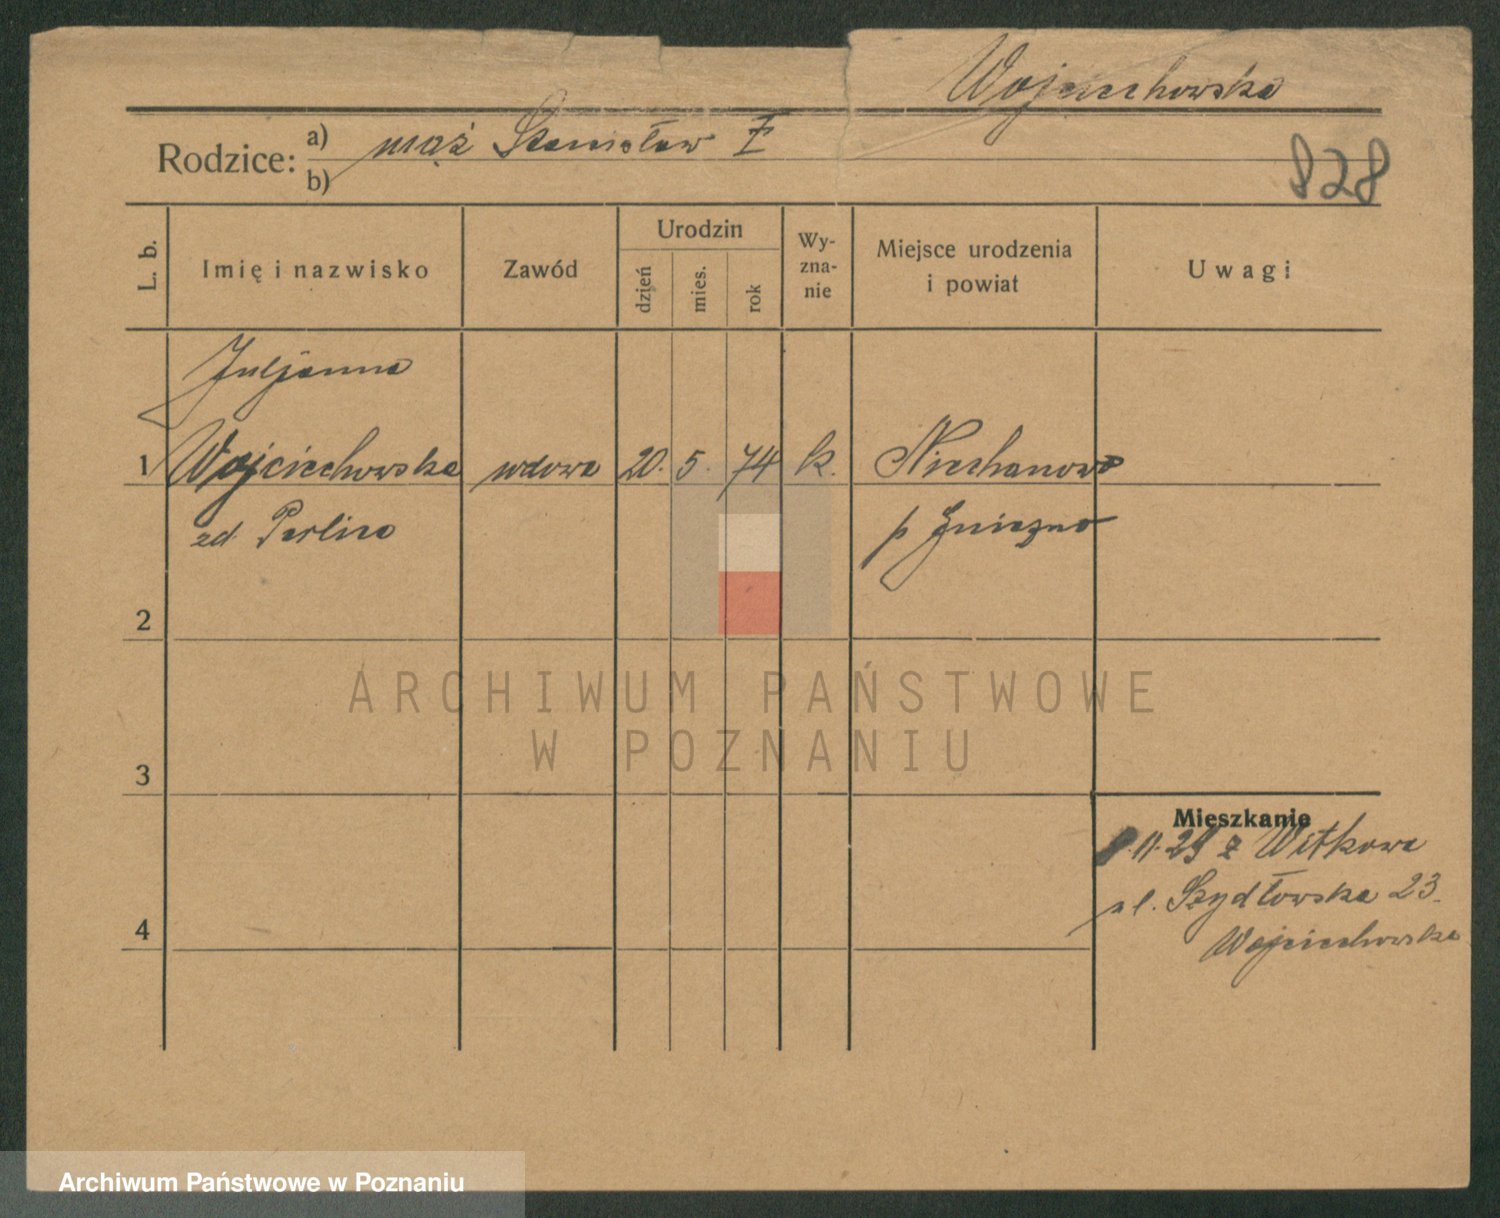 Wojciechowska
Rodzice: a) mąż Stanisław Ɨ
b)
828
L. b.
Imię i nazwisko
Zawód
Urodzin
dzień
mies.
rok
Wy-
zna-
nie
Miejsce urodzenia
i powiat
Uwagi
Juljanna
1 Wojciechowska wdowa 20. 5. 74 k. Niechanowo
zd p Gniezno
2
3
4
ARCHIWUM PAŃSTWOWE
W POZNANIU
Mieszkanie
8.11.29 z Witkowa
ul. Szydłowska 23.
Wojciechowska
Archiwum Państwowe w Poznaniu